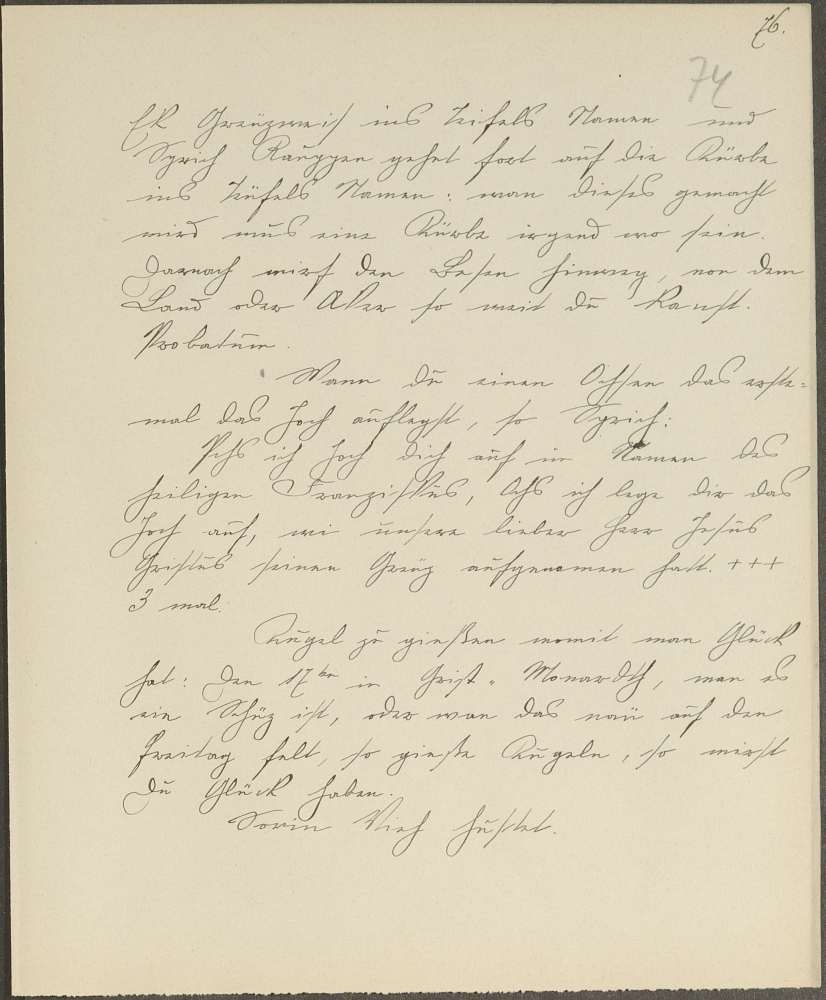 76.
74
Ek Greuzweis ins Teifels Namen und
Sprich Rauppen gehet fort auf die Kürbe
ins Teüfels Namen: wan dieses gemacht
wird mus eine Kürbe irgend wo sein.
Darnach wirf den Besen hinweg, von dem
Land oder Aker so weit du kanst.
Probatum.
Wann du einen Ochsen das erste=
mal das Joch auflegst, so Sprich:
Ochs ich Joch dich auf im Namen des
heiligen Franziskus, Ochs ich lege dir das
Joch auf, wi unsere lieber Herr Jesus
Gristus seinen Greuz aufgenomen hatt. +++
3 mal.
Kugel zu gießen womit man Glück
hat: Den 17ten in Grist-Monardth, wan es
ein Schüz ist, oder wan das neü auf den
Freitag felt, so gieße Kugeln, so wirst
Du Glück haben.
Vieh hustet.